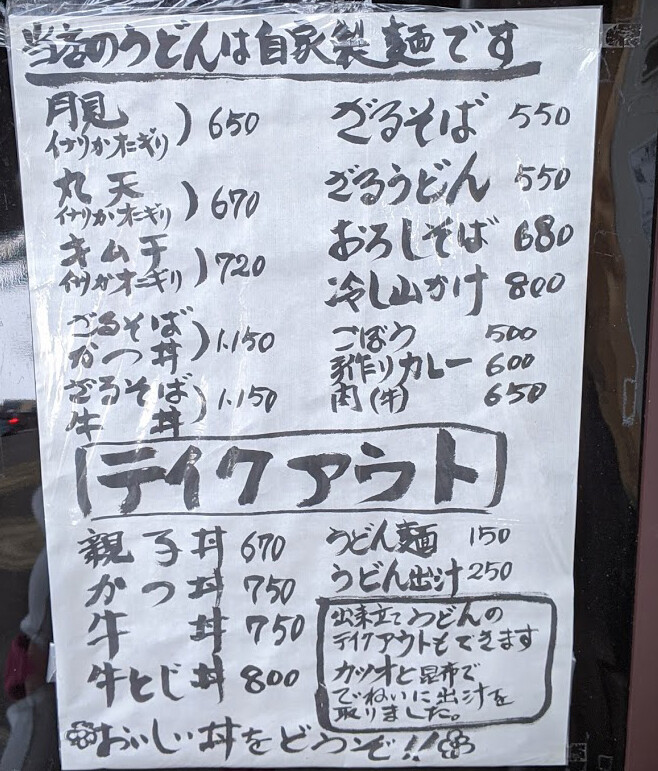 当店のうどんは自家製麺です
月見
イナリかオニギリ ) 650
丸天
イナリかオニギリ ) 670
キムチ
イナリかオニギリ ) 720
ざるそば
かつ丼 ) 1.150
ざるそば
牛丼 ) 1.150
ざるそば 550
ざるうどん 550
おろしそば 680
冷し山かけ 800
ごぼう 500
手作りカレー 600
肉(牛) 650
テイクアウト
親子丼 670
かつ丼 750
牛丼 750
牛とじ丼 800
うどん麺 150
うどん出汁 250
出来立てうどんの
テイクアウトもできます
カツオと昆布で
でねいに出汁を
取りました。
おいしい丼をどうぞ!!